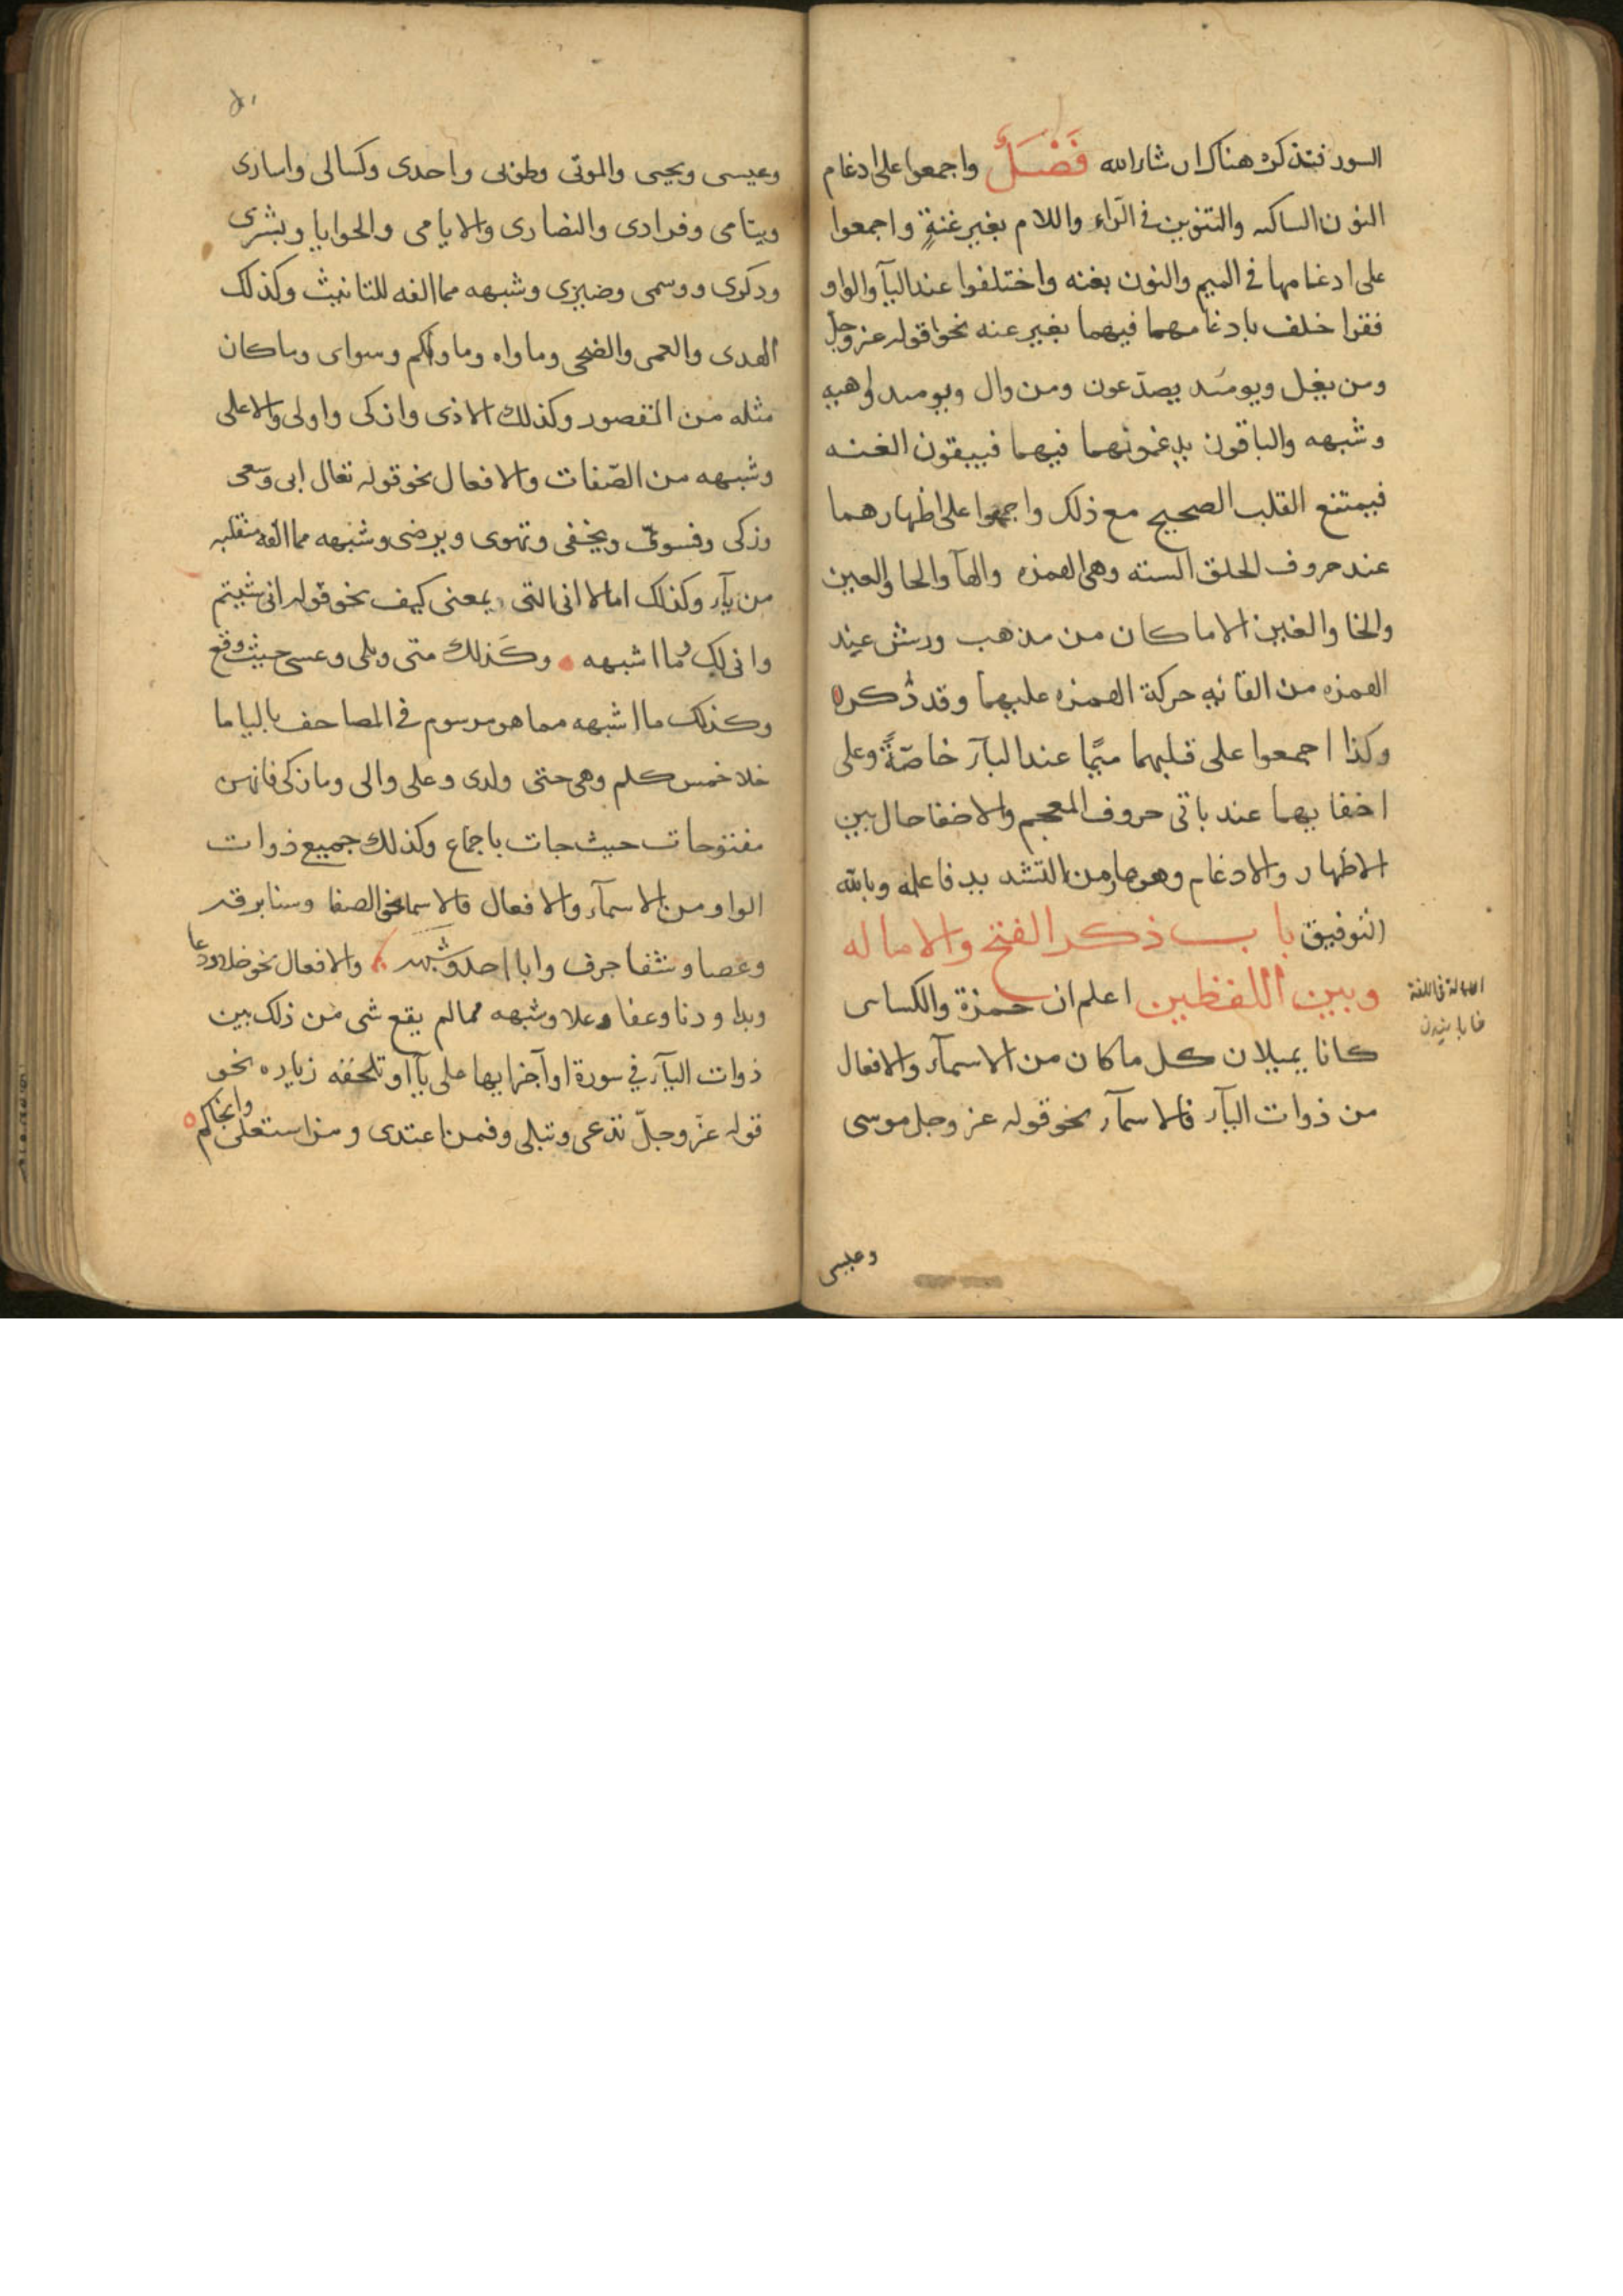 السور فنذكره هناك ان شاء الله فَصْلٌ واجمعوا على ادغام
النون الساكنه والتنوين في الرّاء واللام بغير غنةٍ واجمعوا
على ادغامها في الميم والنون بغنه واختلفوا عند اليآ والواو
فقرا خلف بادغامهما فيهما بغير عنه نحو قوله عز وجل
ومن يقل ويومئد يصدّعون ومن وال ويومىد واهيه
وشبهه والباقون يدغمونهما فيهما فيبقون الغنه
فيمتنع القلب الصحيح مع ذلك واجمعوا على اظهارهما
عند حروف الحلق السته وهى الهمزه والهآ والحا والعين
والخا والغين الا ما كان من مذهب ورش عند
الهمزه من القائه حركة الهمزه عليهما وقد ذُكره
وكذا اجمعوا على قلبهما ميمًا عند البآء خاصّةً وعلى
اخفايهما عند باقى حروف المعجم والاخفا حال بين
الاظهار والادغام وهو عار من التشديد فاعلمه وبالله
التوفيق باب ذكر الفتح والاماله
وبين اللفظين اعلم ان حمزة والكساى
كانا يميلان كل ما كان من الاسمآء والافعال
من ذوات اليآء فالاسمآء نحو قوله عز وجل موسى
الامالة فى اللغة
وعيسى
وعيسى ويحيى والموتى وطوبى واحدى وكسالى واسارى
ويتامى وفرادى والنصارى والايامى والحوايا وبشرى
وذكرى ووسمى وضيزى وشبهه مما الفه للتانيث وكذلك
الهدى والعمى والضحى وماواه وماواكم وسواى وماكان
مثله من المقصور وكذلك الاذى وازكى واولى والاعلى
وشبهه من الصّفات والافعال نحو قوله تعالى ابى وسعى
وزكى وفسوىّ ويخفى وتهوى ويرضى وشبهه مما الفه منقلبه
من يآء وكذلك امالا انى التى بمعنى كيف نحو قوله انى شيتم
وانى لك وما اشبهه وكَذلك متى وبلى وعسى حيث وقع
وكذلك ما اشبهه مما هو مرسوم في المصاحف باليا ما
خلا خمس كلم وهى حتى ولدى وعلى والى وما زكى فانهن
مفتوحات حيث جات باجماع وكذلك جميع ذوات
الواو من الاسمآء والافعال فالاسما نحو الصفا وسنا برقه
وعصا وشفا جرف وابا احد وشبهه والافعال نحو خلا ودعا
وبدا ودنا وعفا وعلا وشبهه ممالم يقع شى من ذلك بين
ذوات اليآء في سورة اوآخر ايها على يآ او تلحقه زياده نحو
قوله عزّ وجلّ تدعى وتبلى وفمن اعتدى ومن استعلى وانجاكم